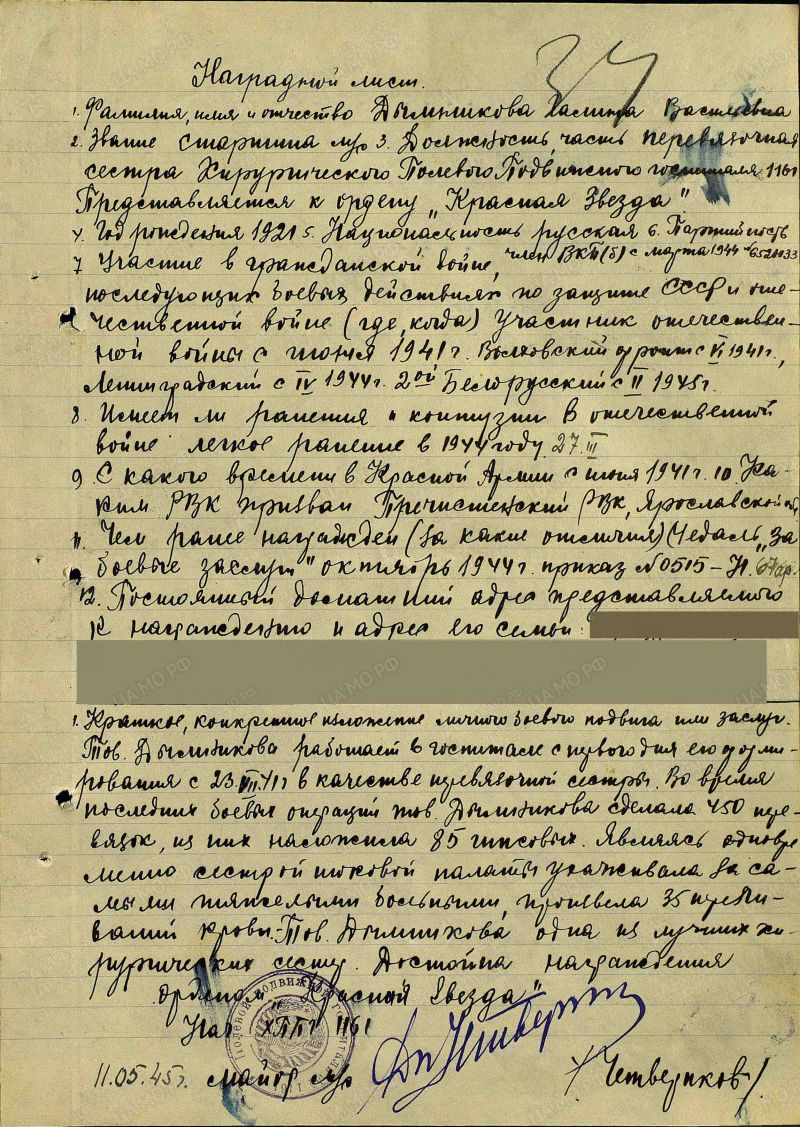 37
Наградной лист.
1. Фамилия, имя и отчество Дымникова Галина Васильевна
2. Звание старшина м/с 3. Должность, часть перевязочная
сестра Хирургического Полевого Подвижного госпиталя 1161
Представляется к ордену "Красная Звезда"
4. Год рождения 1921 5. Национальность русская 6. Партийность
член ВКП(б) с марта 1944
7 Участие в гражданской войне,
последующих боевых действиях по защите СССР и оте-
чественной войне (где, когда) Участник отечествен-
ной войны с июня 1941 г. Волховский фронт с VI 1941 г.,
Ленинградский с IV 1944 г. 2ой Белорусский с II 1945 г.
8. Имеет ли ранения и контузии в отечественной
войне легкое ранение в 1944 году 27. III
9 С какого времени в Красной Армии с июня 1941 г. 10. Ка-
ким РВК призван Пречистенский РВК, Ярославской об.
11. Чем ранее награжден (за какие отличия) Медаль "За
боевые заслуги" октябрь 1944 г. приказ N 0515-Н.
12. Постоянный домашний адрес представляемого
к награждению и адрес его семьи:
1. Краткое, конкретное изложение личного боевого подвига или заслуг.
Тов. Дымникова работает в госпитале с первого дня его форми-
рования с 23. VII. 41 г в качестве перевязочной сестры. Во время
последних боевых операций тов. Дымникова сделала 450 пере-
вязок, из них наложила 85 гипсовых. Являясь одновре
менно сестрой шоковой палаты ухаживала за са-
мыми тяжелыми больными, произвела 35 перели-
ваний крови. Тов. Дымникова одна из лучших хи-
рургических сестер. Достойна награждения
орденом "Красной Звезда"
Нач ХППГ 1161
11.05.45 г. майор м/с /Четвериков/